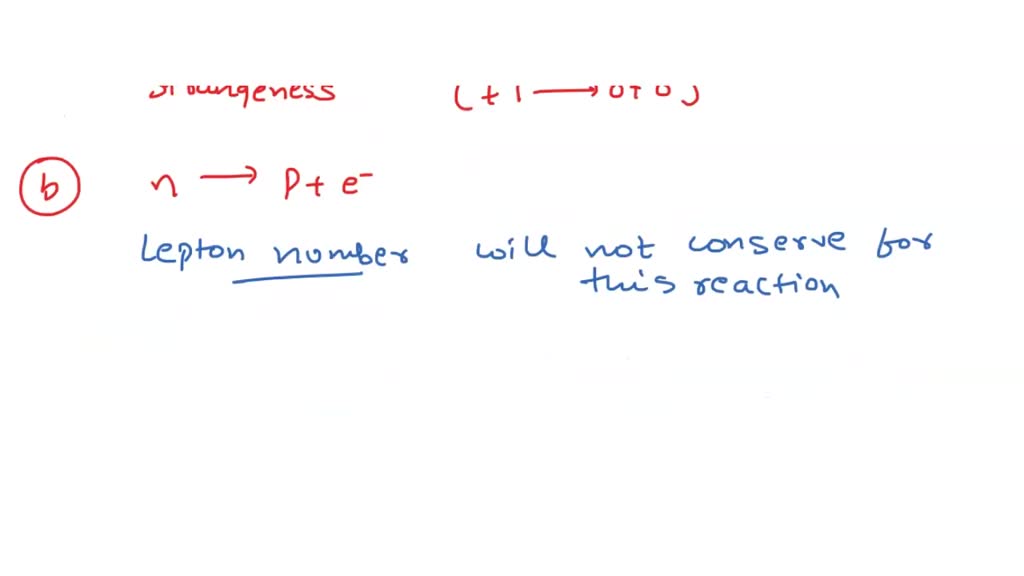 (+1 → 0+0)
b n → p + e⁻
Lepton number will not conserve for
this reaction